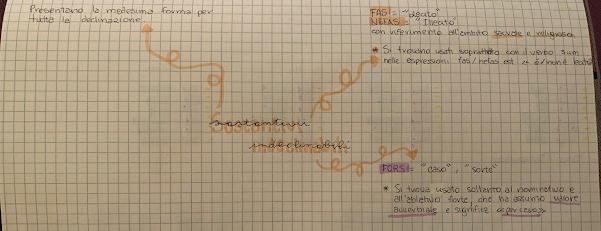 Presentano la medesima forma per
tutta la declinazione
FAS = "lecito"
NEFAS = "illecito"
con riferimento all'ambito sacrale e religioso
* Si trovano usati soprattutto con il verbo sum
nelle espressioni fas/nefas est → è/non è lecito
sostantivi
indeclinabili
FORS = "caso", "sorte"
* Si trova usato soltanto al nominativo e
all'ablativo forte, che ha assunto valore
avverbiale e significa «per caso»